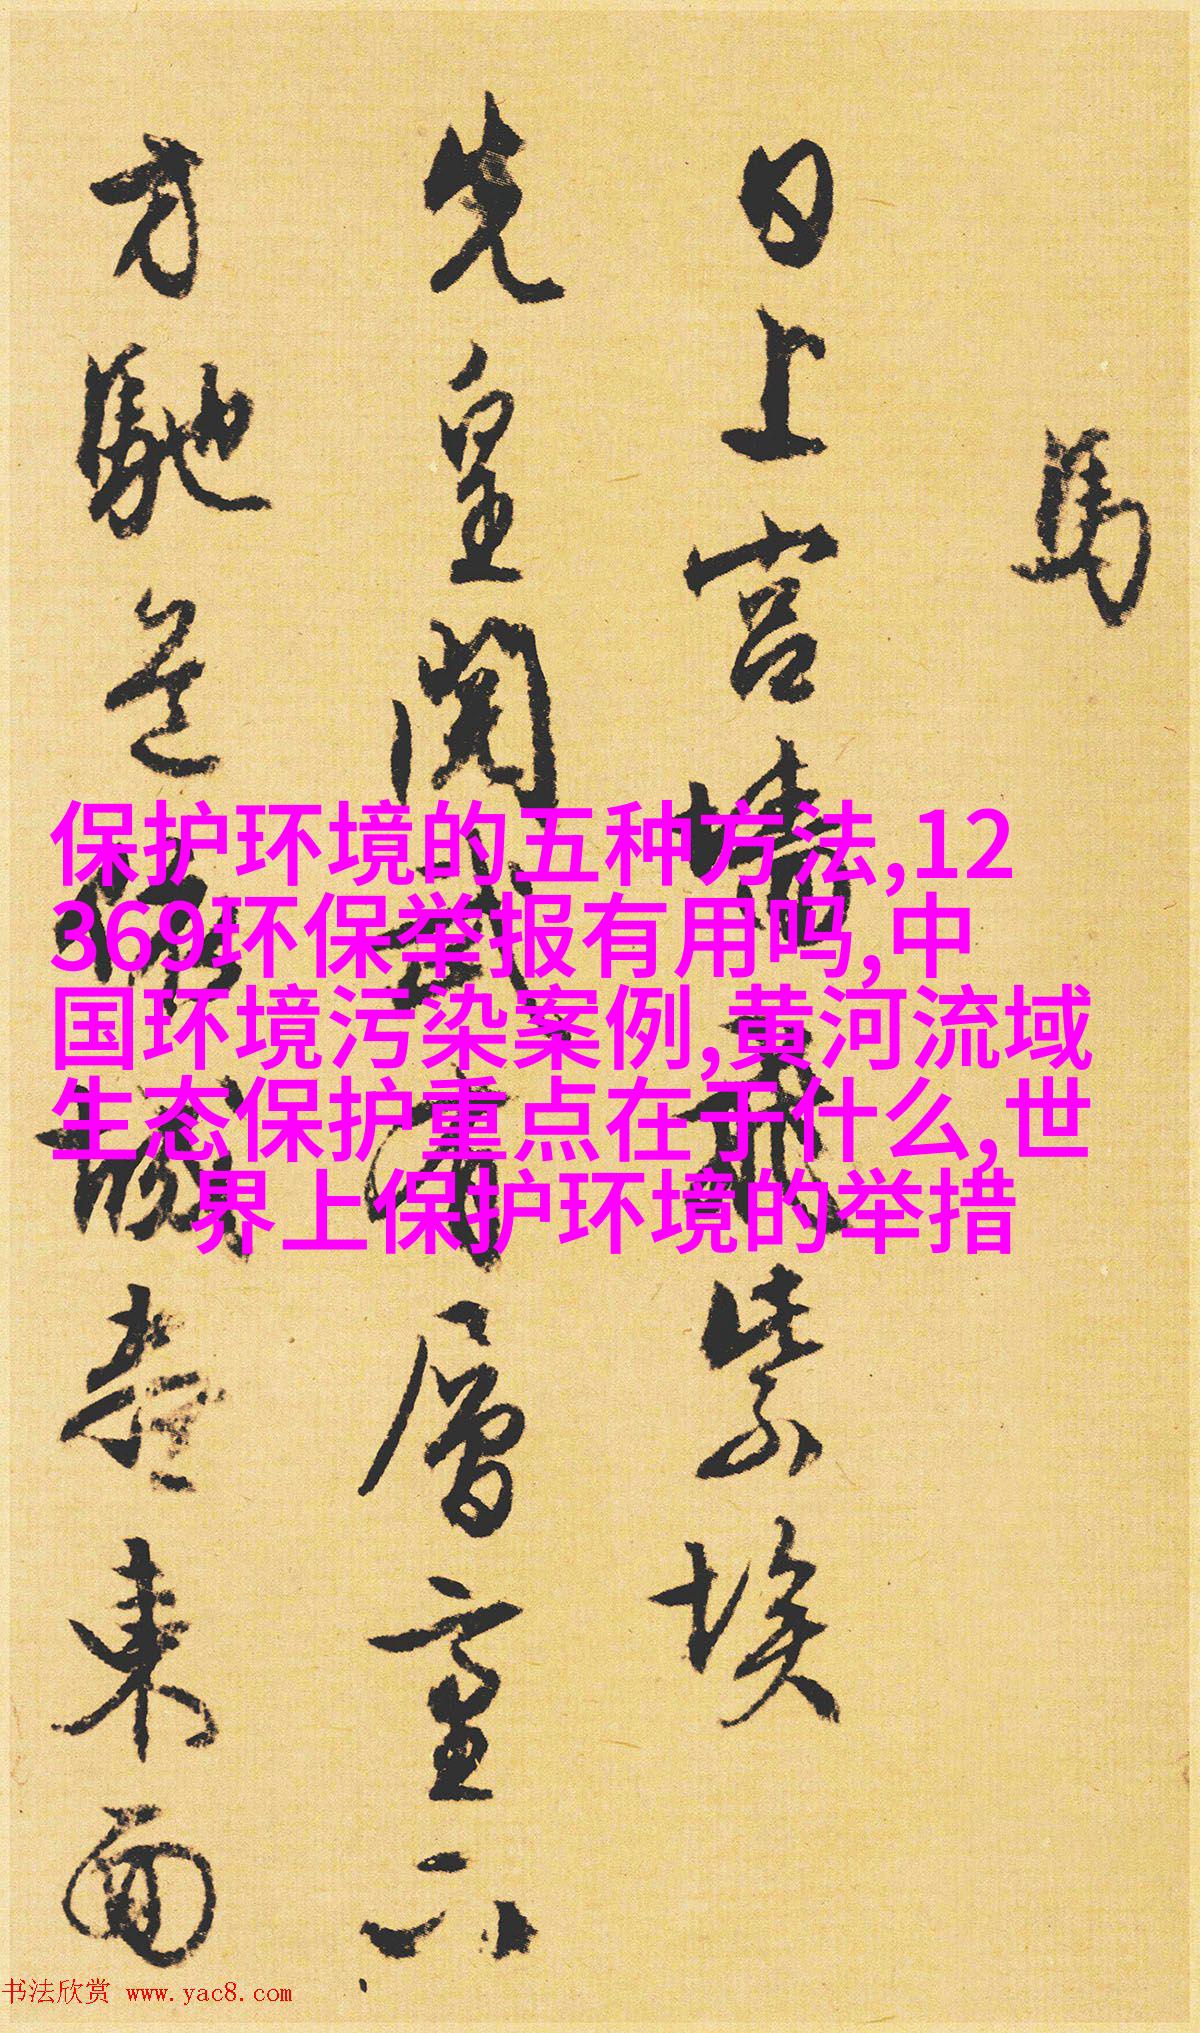 馬
日上宮牆飛紫埃
先皇閱武有層
方馳道
東面
保护环境的五种方法,12
369环保举报有用吗,中
国环境污染案例,黄河流域
生态保护重点在于什么,世
界上保护环境的举措
书法欣赏 www.yac8.com